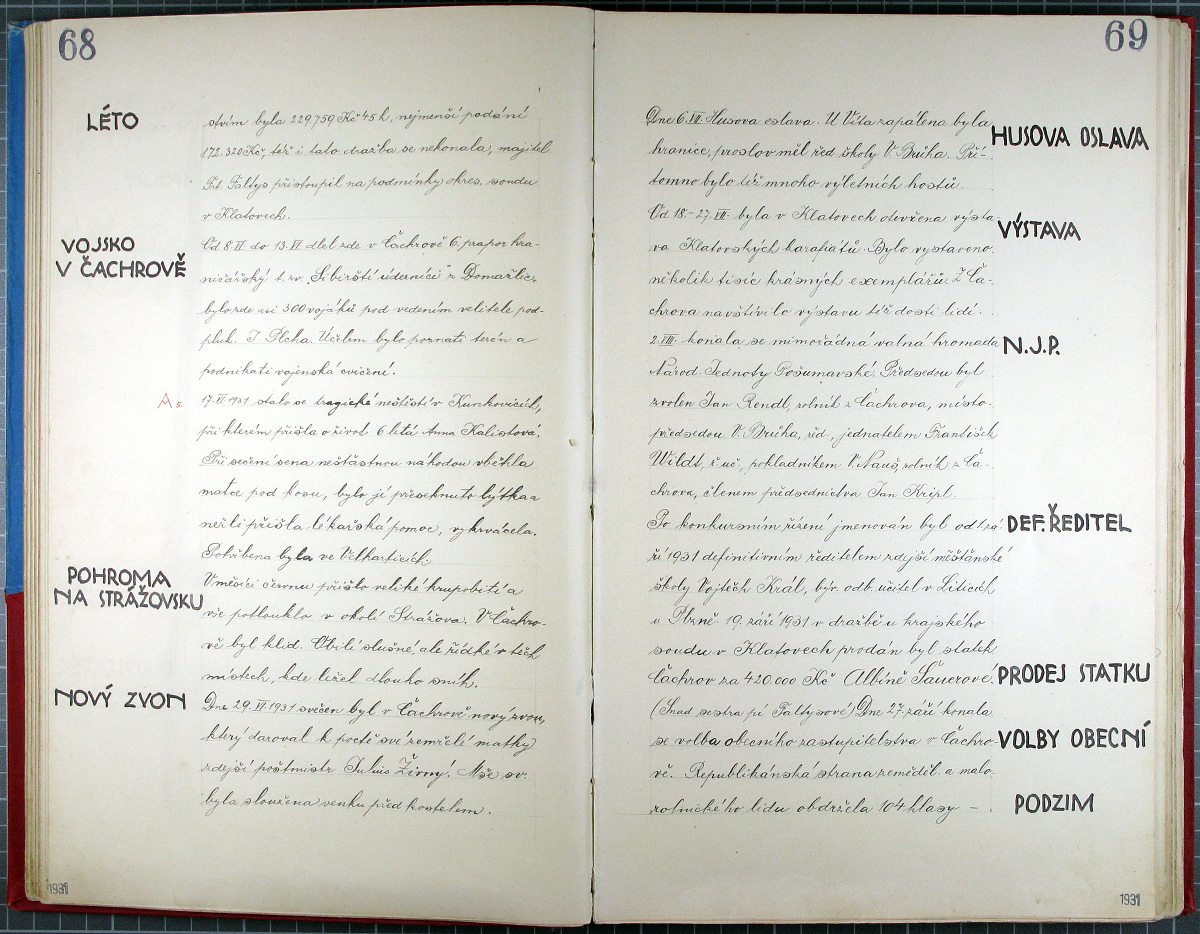 68
LÉTO
stvím byla 229,759 Kč 45 h, nejmenší podání
172.320 Kč, též i tato dražba se nekonala, majitel
Frt. Faltys přistoupil na podmínky okres. soudu
v Klatovech.
VOJSKO
V ČACHROVĚ
Od 8.VI. do 13.VI dlel zde v Čachrově 6. prapor hra-
ničářský t. zv. „Sibiřští úderníci" z Domažlic,
bylo zde asi 300 vojáků pod vedením velitele pod-
pluk. J. Plcha. Účelem bylo poznati terén a
podnikati vojenská cvičení.
A s.
17.VI 1931 stalo se tragické neštěstí v Kunkovicích,
při kterém přišla o život 6 letá Anna Kalistová.
Při sečení sena nešťastnou náhodou vběhla
matce pod kosu, bylo jí přeseknuto lýtko a
nežli přišla lékařská pomoc, vykrvácela.
Pohřbena byla ve Velharticích.
POHROMA
NA STRÁŽOVSKU
V měsíci červnu přišlo veliké krupobití a
vše potlouklo v okolí Strážova. V Čachro-
vě byl klid. Obilí slušné, ale řídké v těch
místech, kde ležel dlouho sníh.
NOVÝ ZVON
Dne 29.VI 1931 svěcen byl v Čachrově nový zvon,
který daroval k poctě své zemřelé matky
zdejší poštmistr Julius Živný. Mše sv.
byla sloužena venku před kostelem.
1931
69
Dne 6.VII. Husova oslava. U Víta zapálena byla
HUSOVA OSLAVA
hranice, proslov měl řed. školy V. Brůha. Pří-
tomno bylo též mnoho výletních hostů.
Od 18.-27.VII. byla v Klatovech otevřena výsta
VÝSTAVA
va Klatovských karafiátů. Bylo vystaveno
několik tisíc krásných exemplářů. Z Ča-
chrova navštívilo výstavu též dosti lidí.
2.VIII. konala se mimořádná valná hromada
N.J.P.
Národ. Jednoty Pošumavské. Předsedou byl
zvolen Jan Rendl, rolník z Čachrova, místo-
předsedou V. Brůha, řid., jednatelem František
Wildt, ř. uč., pokladníkem V. Nauš, rolník z Ča-
chrova, členem předsednictva Jan Kripl.
Po konkursním řízení jmenován byl od 1. zá
DEF. ŘEDITEL
ří 1931 definitivním ředitelem zdejší měšťanské
školy Vojtěch Král, býv. odb. učitel v Liticích
u Plzně. 19. září 1931 v dražbě u krajského
soudu v Klatovech prodán byl statek
Čachrov za 420.000 Kč Albíně Sauerové.
PRODEJ STATKU
(Snad sestra pí Faltysové) Dne 27. září konala
se volba obecního zastupitelstva v Čachro-
VOLBY OBECNÍ
vě. Republikánská strana zeměděl. a malo
rolnického lidu obdržela 104 hlasy –
PODZIM
1931